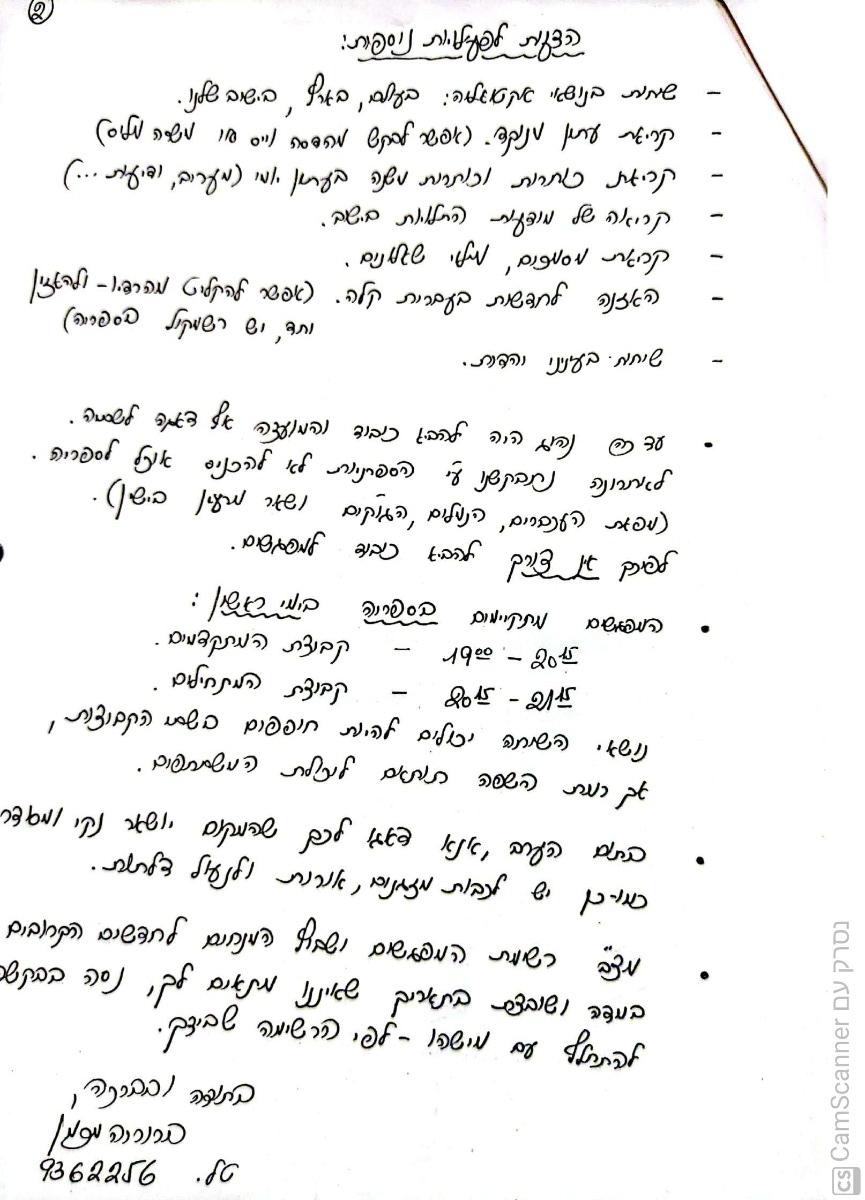 2
הצעות לפעילויות נוספות:
- שיחות בנושאי אקטואליה: בעולם, בארץ, בישוב שלנו.
- קריאת עתון מנוקד. (אפשר לבקש מהדסה וייס או משרה מלוס)
- קריאת כותרות וכותרות משנה בעתון יומי (מעריב, ידיעות ...)
- קריאה של מודעות התלויות בישוב.
- קריאת מסמכים, מילוי שאלונים.
- האזנה לחדשות בעברית קלה. (אפשר להקליט מהרדיו - ולהאזין
יחד, יש רשמקול בספריה)
- שיחות בעניני יהדות.
• עד כה נהוג היה להביא כיבוד והמועצה אף דאגה לשתיה.
לאחרונה נתבקשנו ע"י הספרניות לא להכניס אוכל לספריה.
(מפאת העכברים, הנמלים, הג'וקים ושאר מרעין בישין).
לפיכך אין צורך להביא כיבוד למפגשים.
• המפגשים מתקיימים בספריה בימי ראשון:
19⁰⁰ - 20¹⁵ - קבוצת המתקדמים.
20¹⁵ - 21¹⁵ - קבוצת המתחילים.
נושאי השיחה יכולים להיות חופפים בשתי הקבוצות,
אך רמת השפה תותאם ליכולת המשתתפים.
• בתום הערב, אנא דאגו לכך שהמקום יושאר נקי ומסודר
כמו-כן יש לכבות מזגנים, אורות ולנעול דלתות.
• מצ"ב רשימת המפגשים ושבוץ המנחים לחדשים הקרובים
במדה ושובצת בתאריך שאיננו מתאים לך, נסה בבקשה
להתחלף עם מישהו - לפי הרשימה שבידך.
בתודה ובברכה,
ברוריה
טל. 9362256
נסרק עם CamScanner
CS